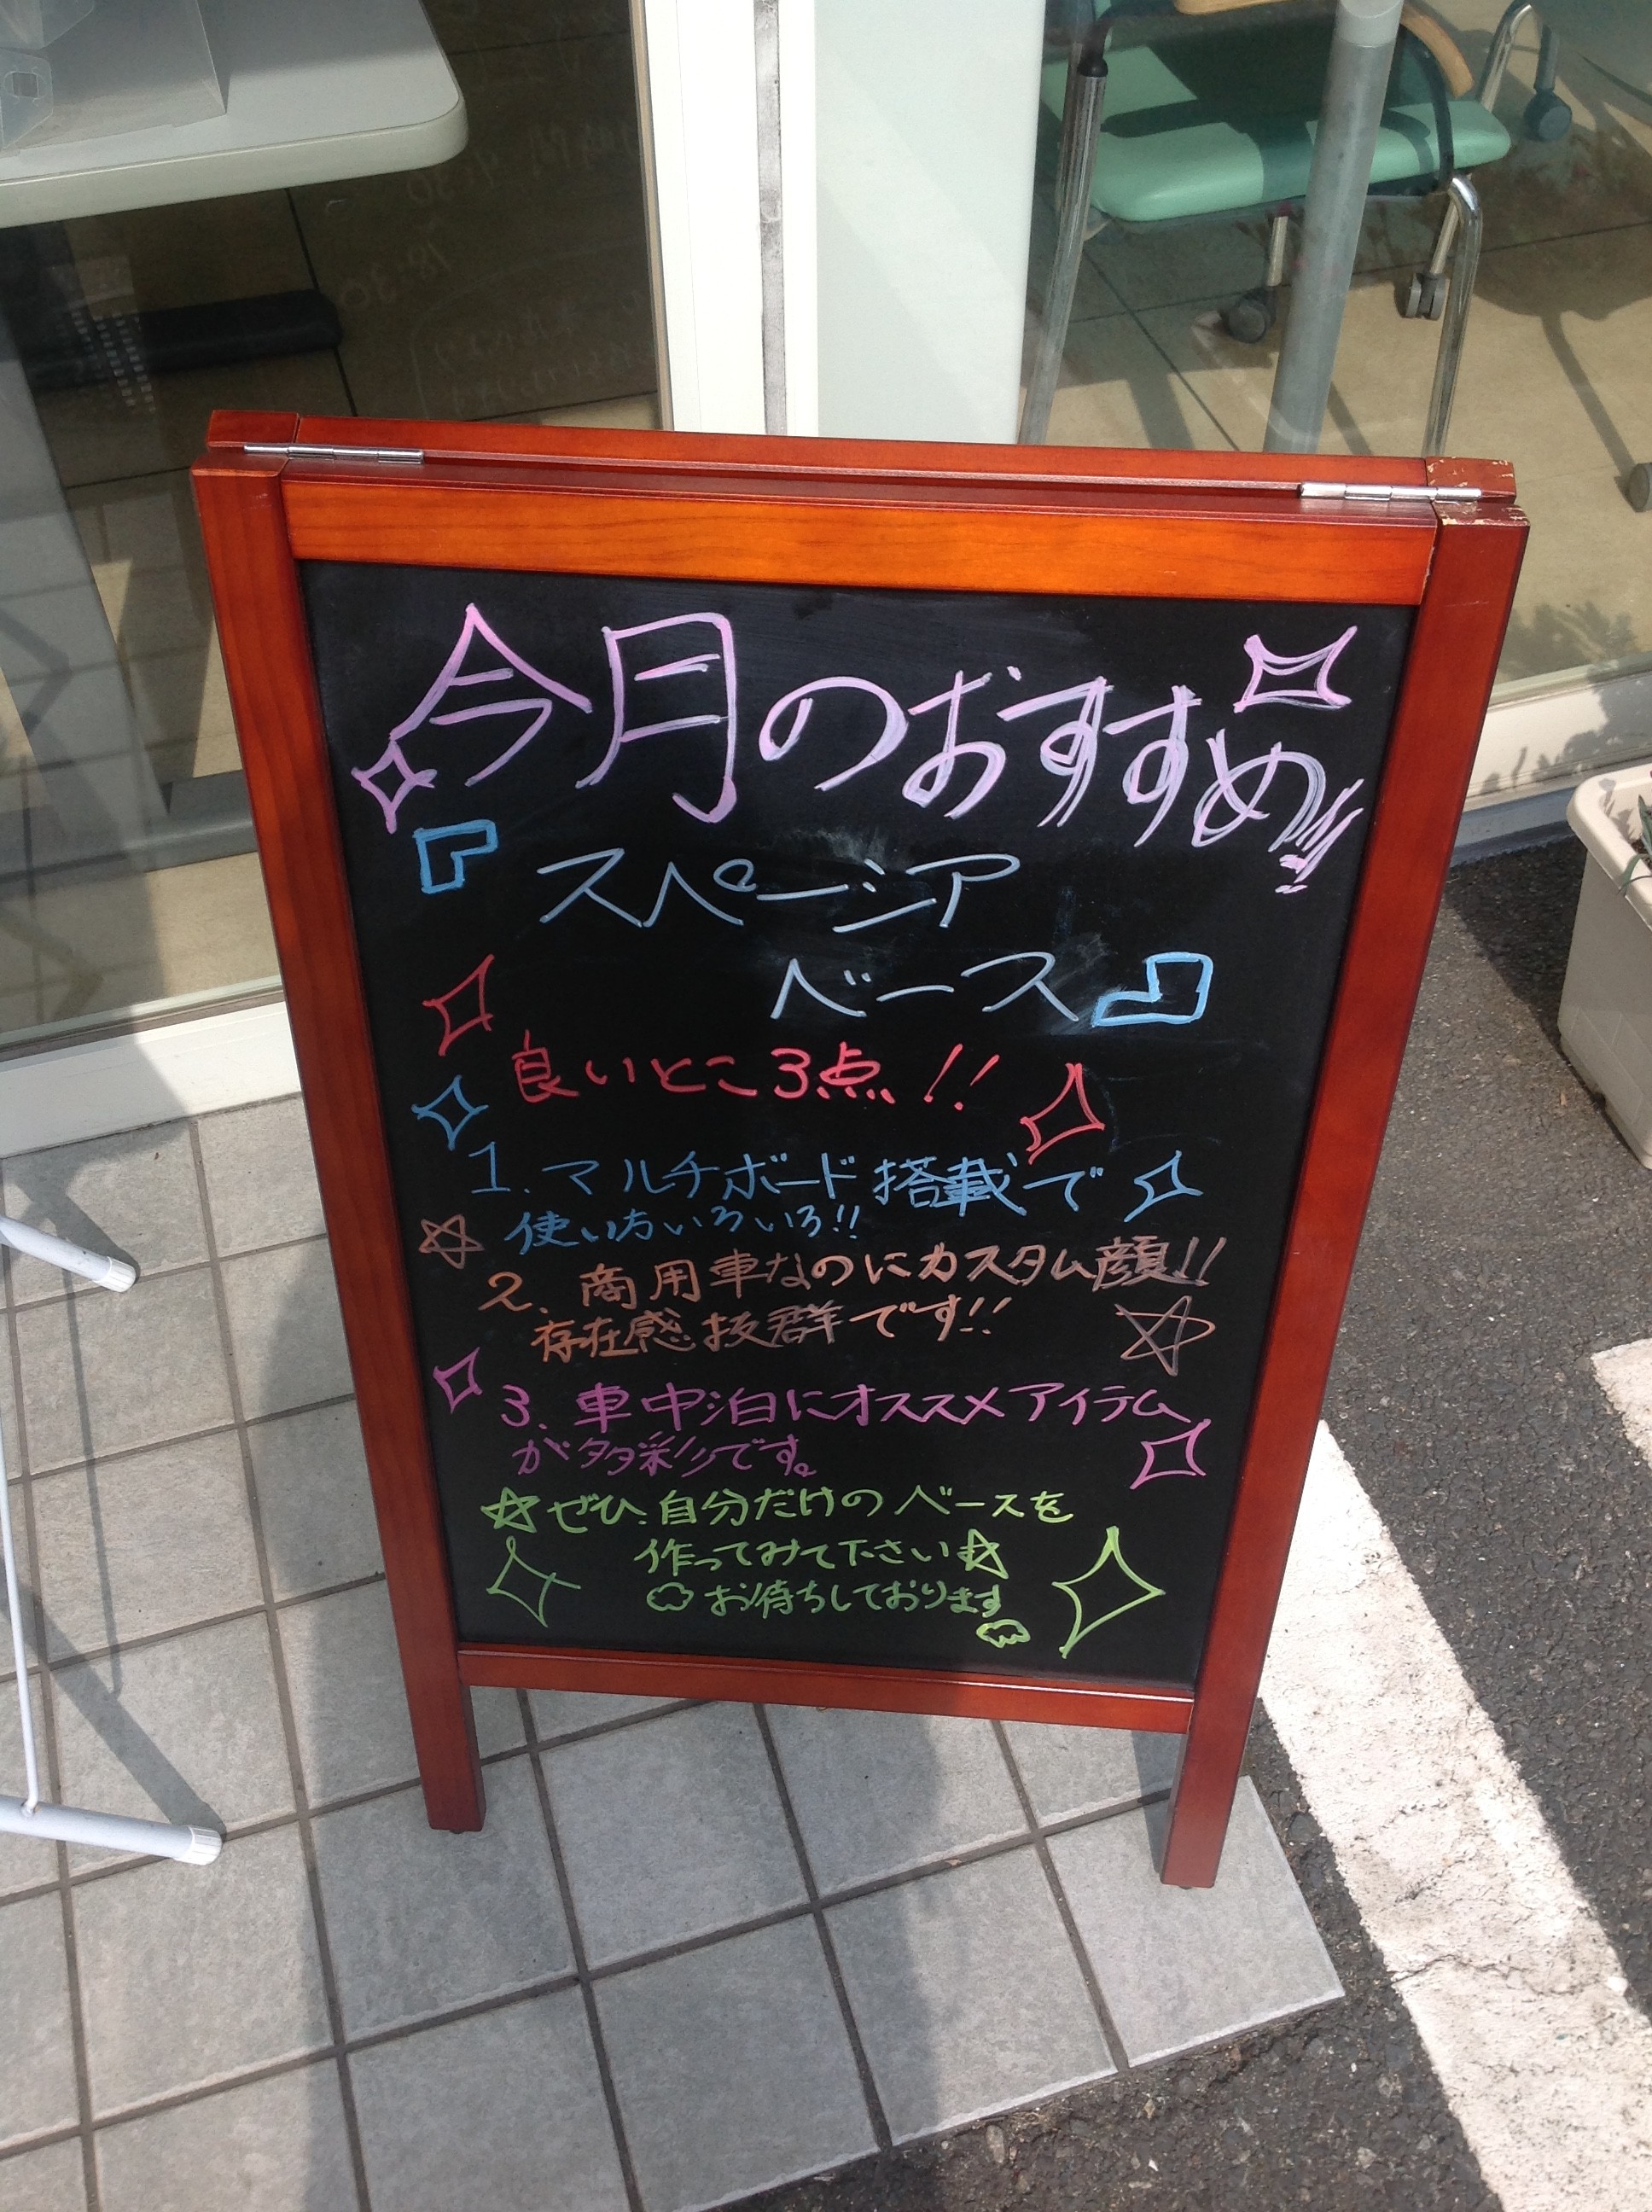 今月のおすすめ!!
『スペーシア
ベース』
良いとこ3点!!
1.マルチボード搭載で
使い方いろいろ!!
2.商用車なのにカスタム顔!!
存在感抜群です!!
3.車中泊にオススメアイテム
が多彩です。
☆ぜひ、自分だけのベースを
作ってみて下さい☆
お待ちしております